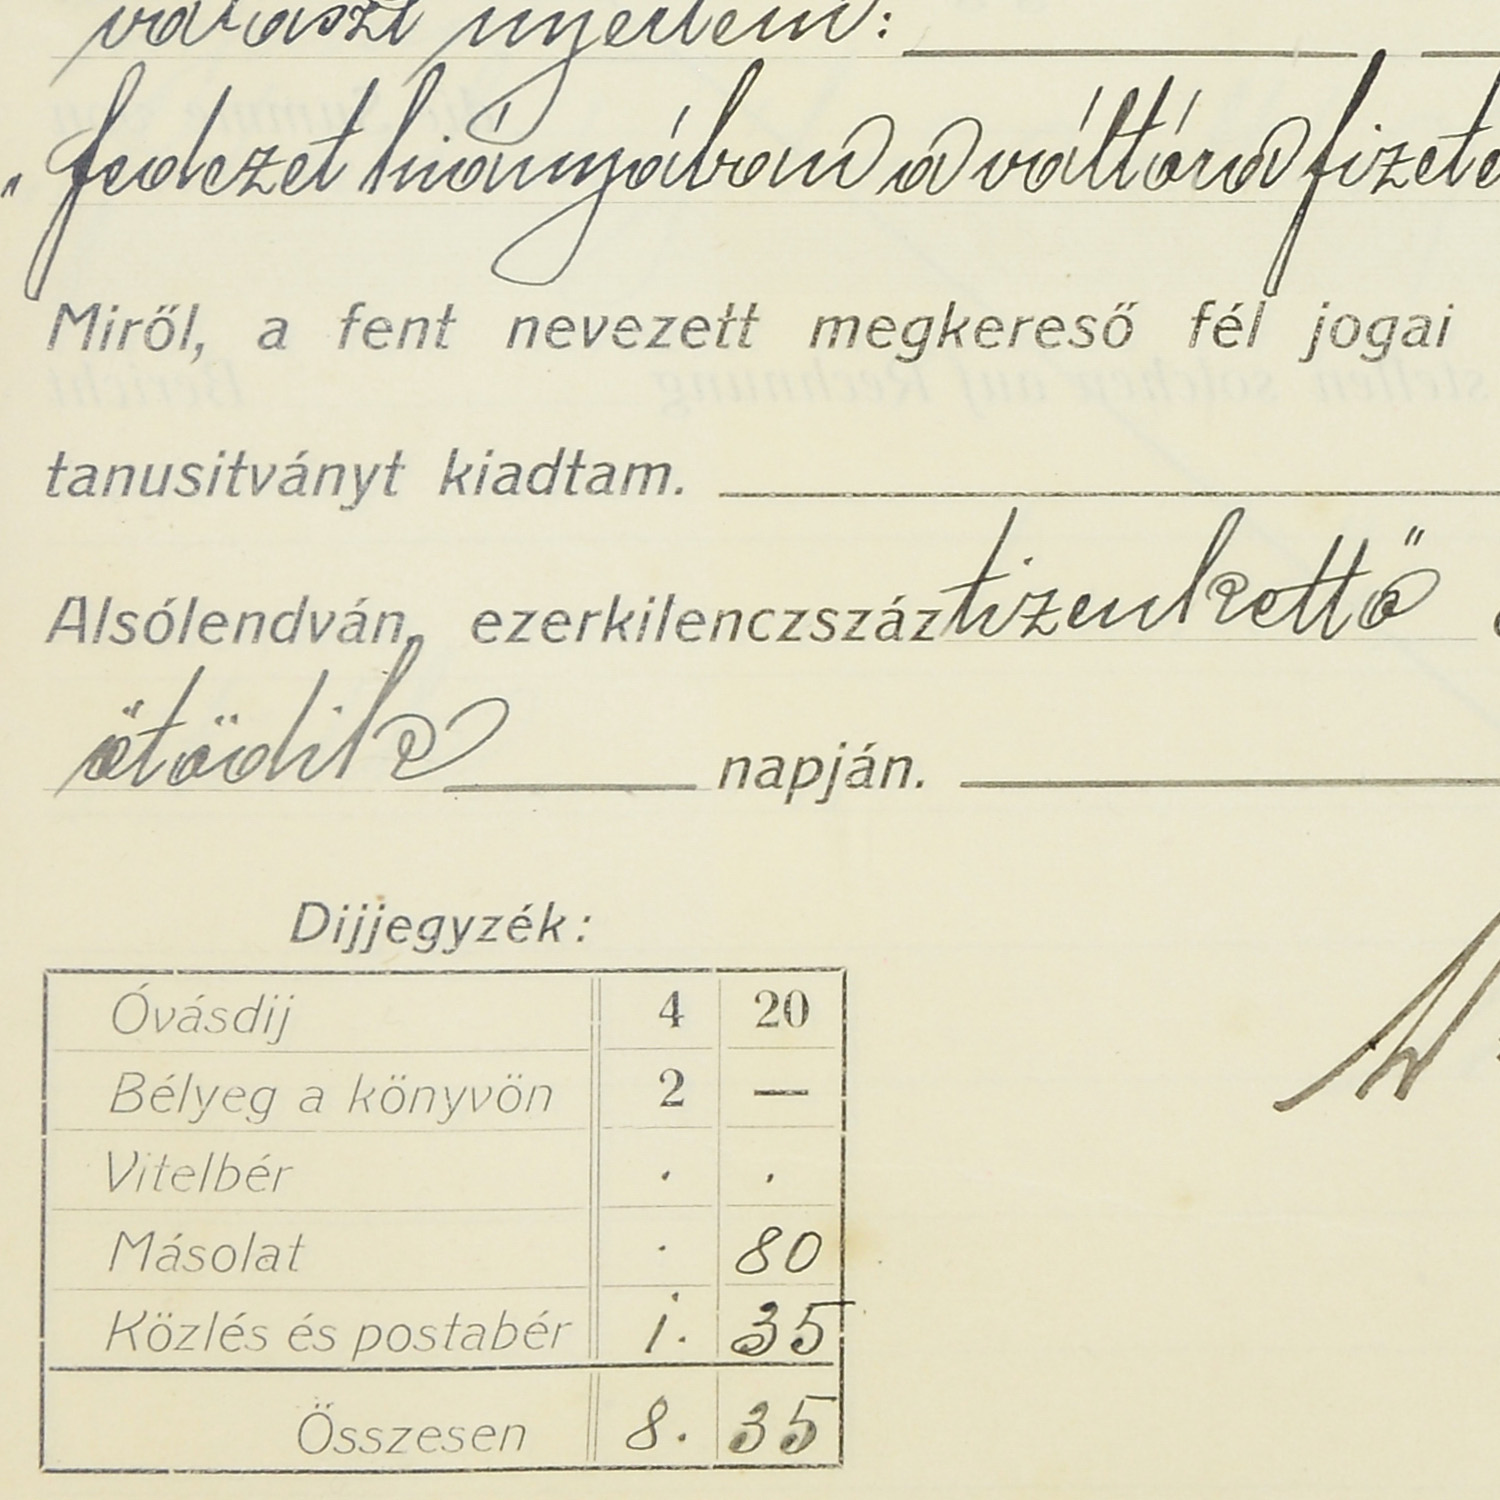 választ nyertem:
„fedezet hiányában a váltóra fizete
Miről, a fent nevezett megkereső fél jogai
tanusitványt kiadtam.
Alsólendván, ezerkilenczszáztizenkettő
ötödik napján.
Dijjegyzék:
Óvásdij 4 20
Bélyeg a könyvön 2 —
Vitelbér . .
Másolat . 80
Közlés és postabér 1. 35
Összesen 8. 35